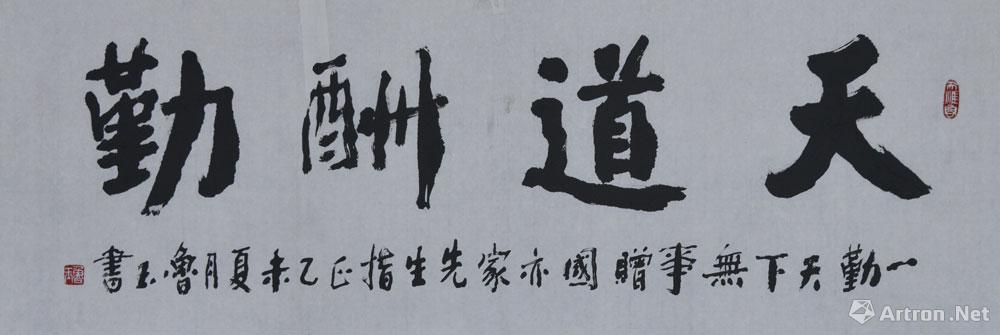 天道酬勤
一勤天下無事贈國亦家先生指正乙未夏月魯玉書
Artron.Net